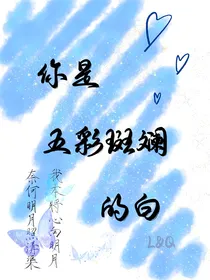 你是
五彩斑斓
的白
我本将心向明月
奈何明月照沟渠
L&Q